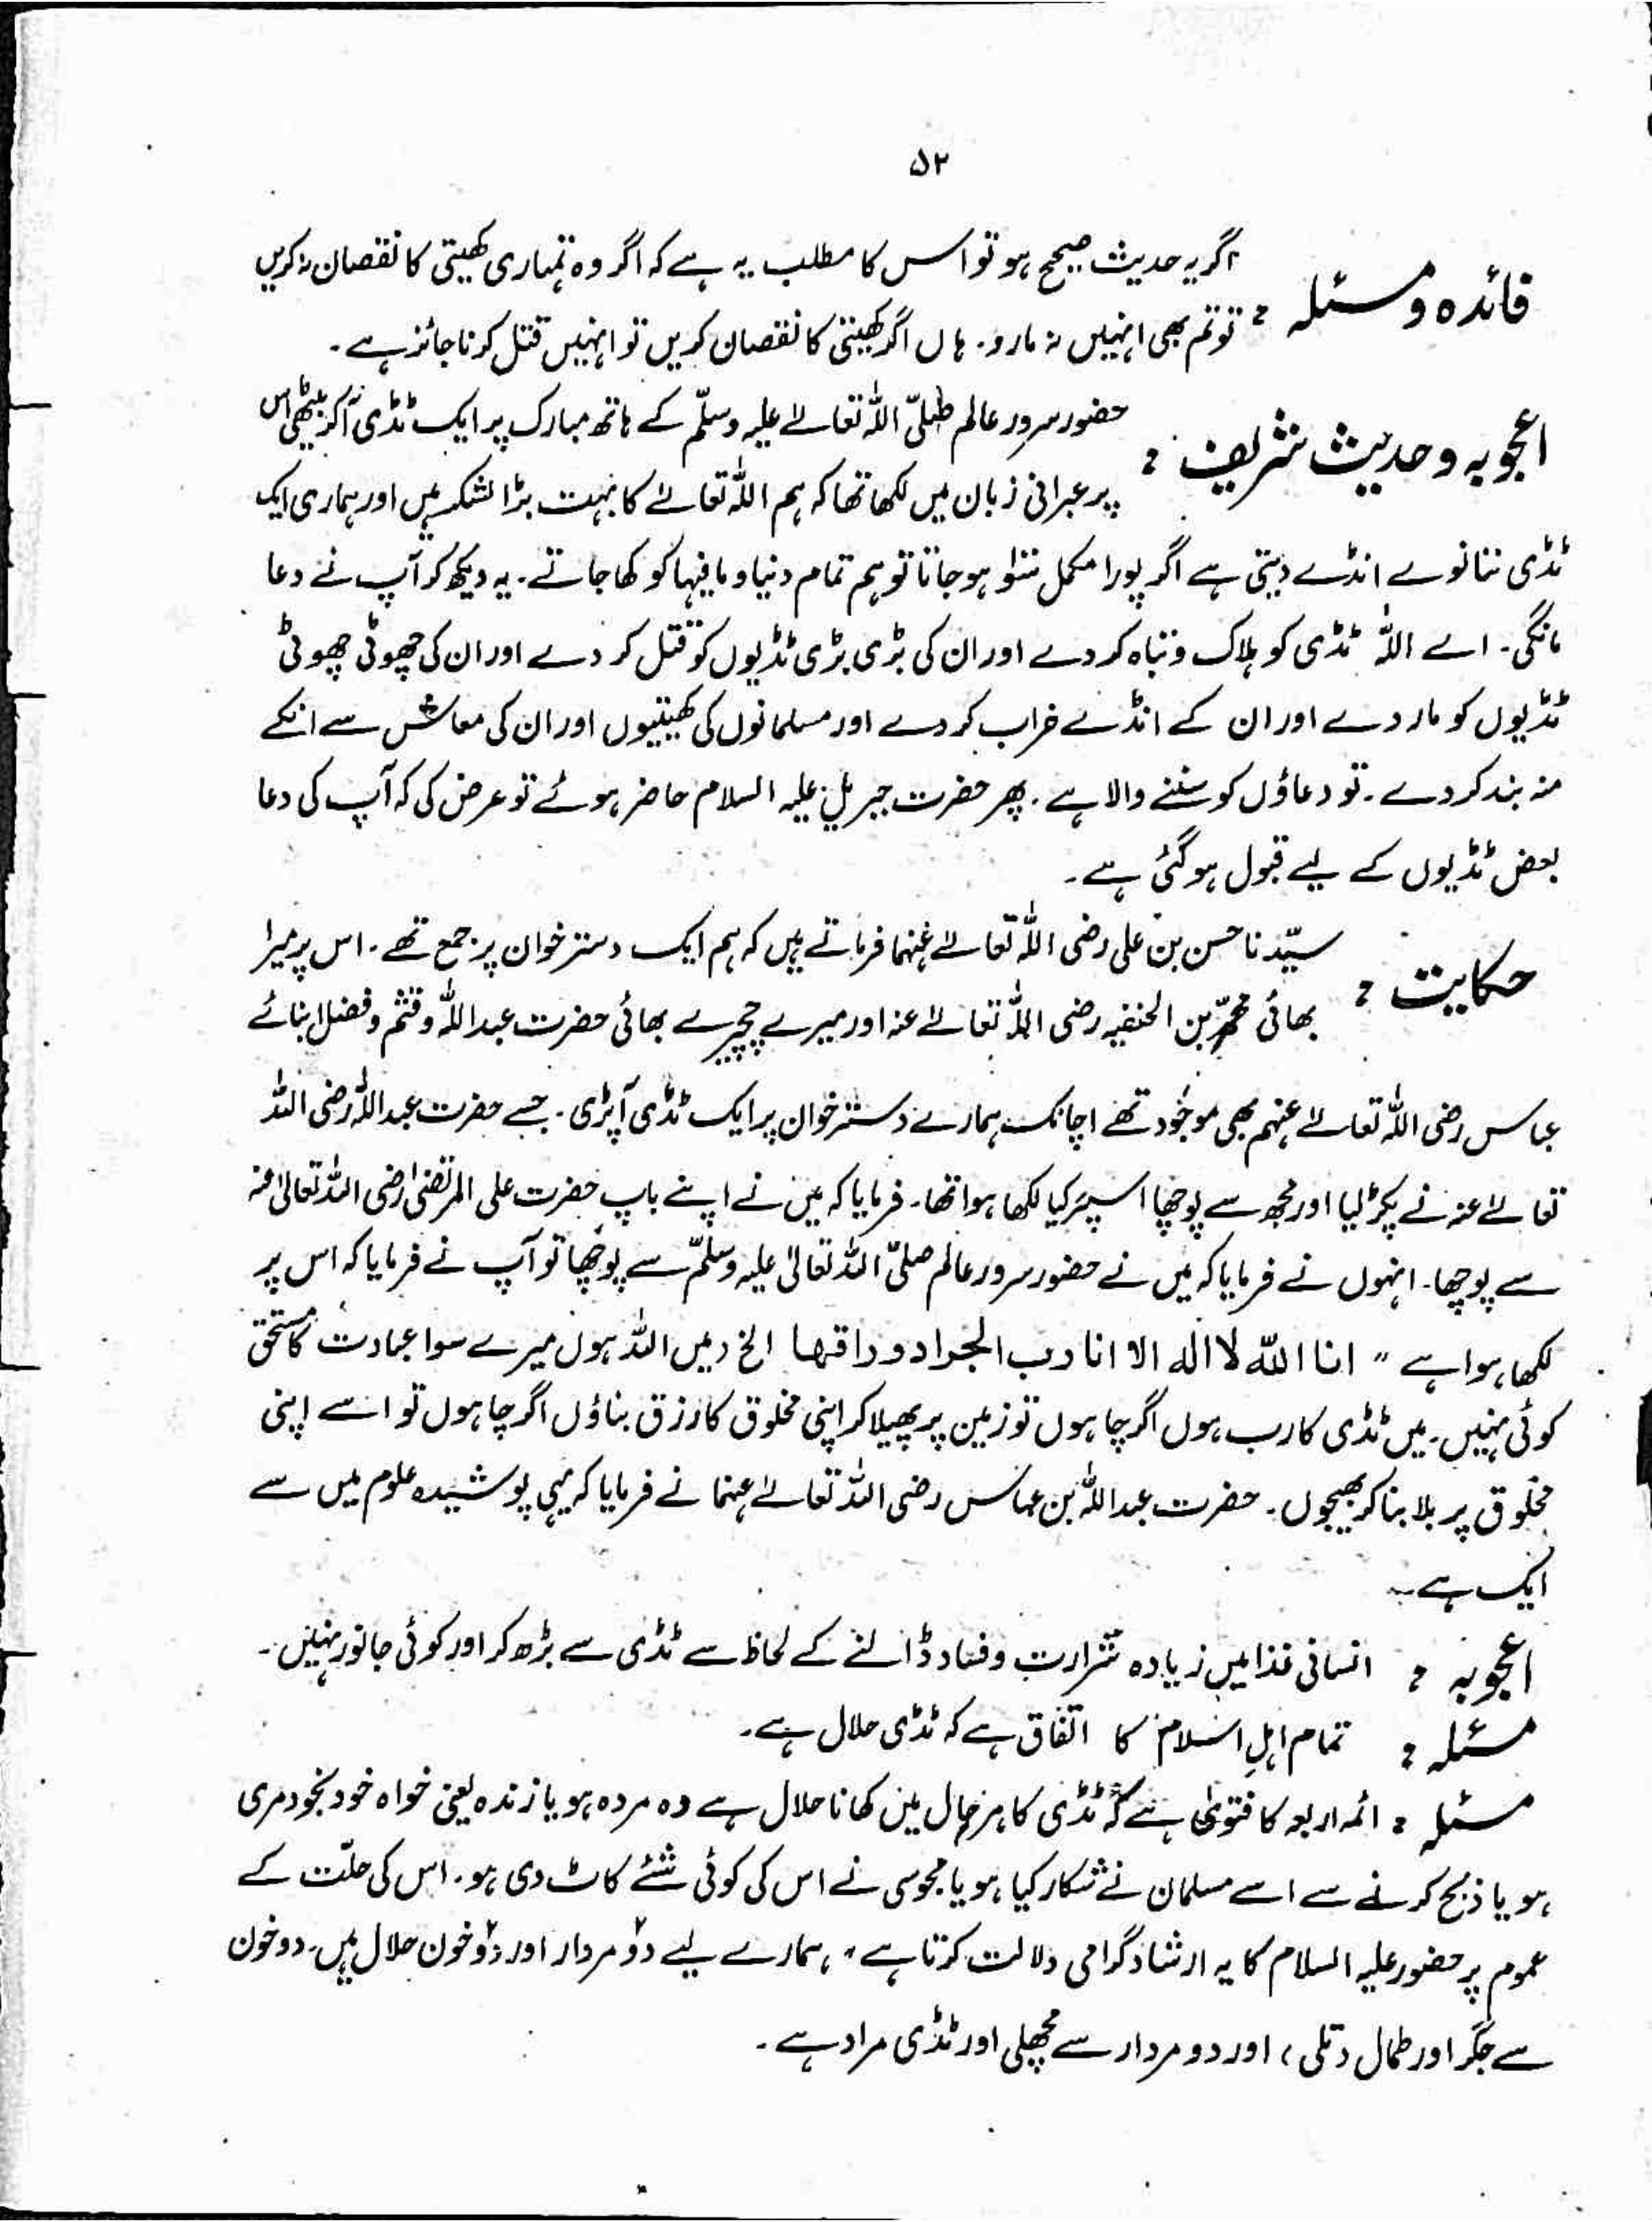 ۵۲
فائدہ و مسئلہ : اگر یہ حدیث صحیح ہو تو اس کا مطلب یہ ہے کہ اگر وہ تمہاری کھیتی کا نقصان نہ کریں
تو تم بھی انہیں نہ مارو۔ ہاں اگر کھیتی کا نقصان کریں تو انہیں قتل کرنا جائز ہے۔
اعجوبہ و حدیث شریف : حضور سرور عالم صلّی اللہ تعالےٰ علیہ وسلّم کے ہاتھ مبارک پر ایک ٹڈی آکر بیٹھی اس
پر عبرانی زبان میں لکھا تھا کہ ہم اللہ تعالےٰ کا بہت بڑا لشکر ہیں اور ہماری ایک
ٹڈی ننانوے انڈے دیتی ہے اگر پورا مکمل سَو ہو جاتا تو ہم تمام دنیا و مافیہا کو کھا جاتے۔ یہ دیکھ کر آپ نے دعا
مانگی۔ اے اللہ ٹڈی کو ہلاک و تباہ کر دے اور ان کی بڑی بڑی ٹڈیوں کو قتل کر دے اور ان کی چھوٹی چھوٹی
ٹڈیوں کو مار دے اور ان کے انڈے خراب کر دے اور مسلمانوں کی کھیتیوں اور ان کی معاش سے انکے
منہ بند کر دے۔ تو دعاؤں کو سننے والا ہے۔ پھر حضرت جبریل علیہ السلام حاضر ہوئے تو عرض کی کہ آپ کی دعا
بعض ٹڈیوں کے لیے قبول ہو گئی ہے۔
حکایت : سیّدنا حسن بن علی رضی اللہ تعالےٰ عنہما فرماتے ہیں کہ ہم ایک دسترخوان پر جمع تھے۔ اس پر میرا
بھائی محمّد بن الحنفیہ رضی اللہ تعالےٰ عنہ اور میرے چچیرے بھائی حضرت عبداللہ و قثم و فضل ابنائے
عباس رضی اللہ تعالےٰ عنہم بھی موجود تھے اچانک ہمارے دسترخوان پر ایک ٹڈی آپڑی۔ جسے حضرت عبداللہ رضی اللہ
تعالےٰ عنہ نے پکڑ لیا اور مجھ سے پوچھا اسپر کیا لکھا ہوا تھا۔ فرمایا کہ میں نے اپنے باپ حضرت علی المرتضیٰ رضی اللہ تعالیٰ عنہ
سے پوچھا۔ انہوں نے فرمایا کہ میں نے حضور سرور عالم صلّی اللہ تعالیٰ علیہ وسلّم سے پوچھا تو آپ نے فرمایا کہ اس پر
لکھا ہوا ہے " انا اللہ لا الہ الا انا رب الجراد و رازقھا الخ (میں اللہ ہوں میرے سوا عبادت کا مستحق
کوئی نہیں۔ میں ٹڈی کا رب ہوں اگر چاہوں تو زمین پر پھیلا کر اپنی مخلوق کا رزق بناؤں اگر چاہوں تو اسے اپنی
مخلوق پر بلا بنا کر بھیجوں۔ حضرت عبداللہ بن عباس رضی اللہ تعالےٰ عنہما نے فرمایا کہ یہی پوشیدہ علوم میں سے
ایک ہے۔
اعجوبہ : انسانی غذا میں زیادہ شرارت و فساد ڈالنے کے لحاظ سے ٹڈی سے بڑھ کر اور کوئی جانور نہیں۔
مسئلہ : تمام اہلِ اسلام کا اتفاق ہے کہ ٹڈی حلال ہے۔
مسئلہ : ائمہ اربعہ کا فتویٰ ہے کہ ٹڈی کا ہر حال میں کھانا حلال ہے وہ مردہ ہو یا زندہ یعنی خواہ خود بخود مری
ہو یا ذبح کرنے سے اسے مسلمان نے شکار کیا ہو یا مجوسی نے اس کی کوئی شئے کاٹ دی ہو۔ اس کی حلّت کے
عموم پر حضور علیہ السلام کا یہ ارشاد گرامی دلالت کرتا ہے " ہمارے لیے دو مردار اور دو خون حلال ہیں۔ دو خون
سے جگر اور طحال (تلی) اور دو مردار سے مچھلی اور ٹڈی مراد ہے۔